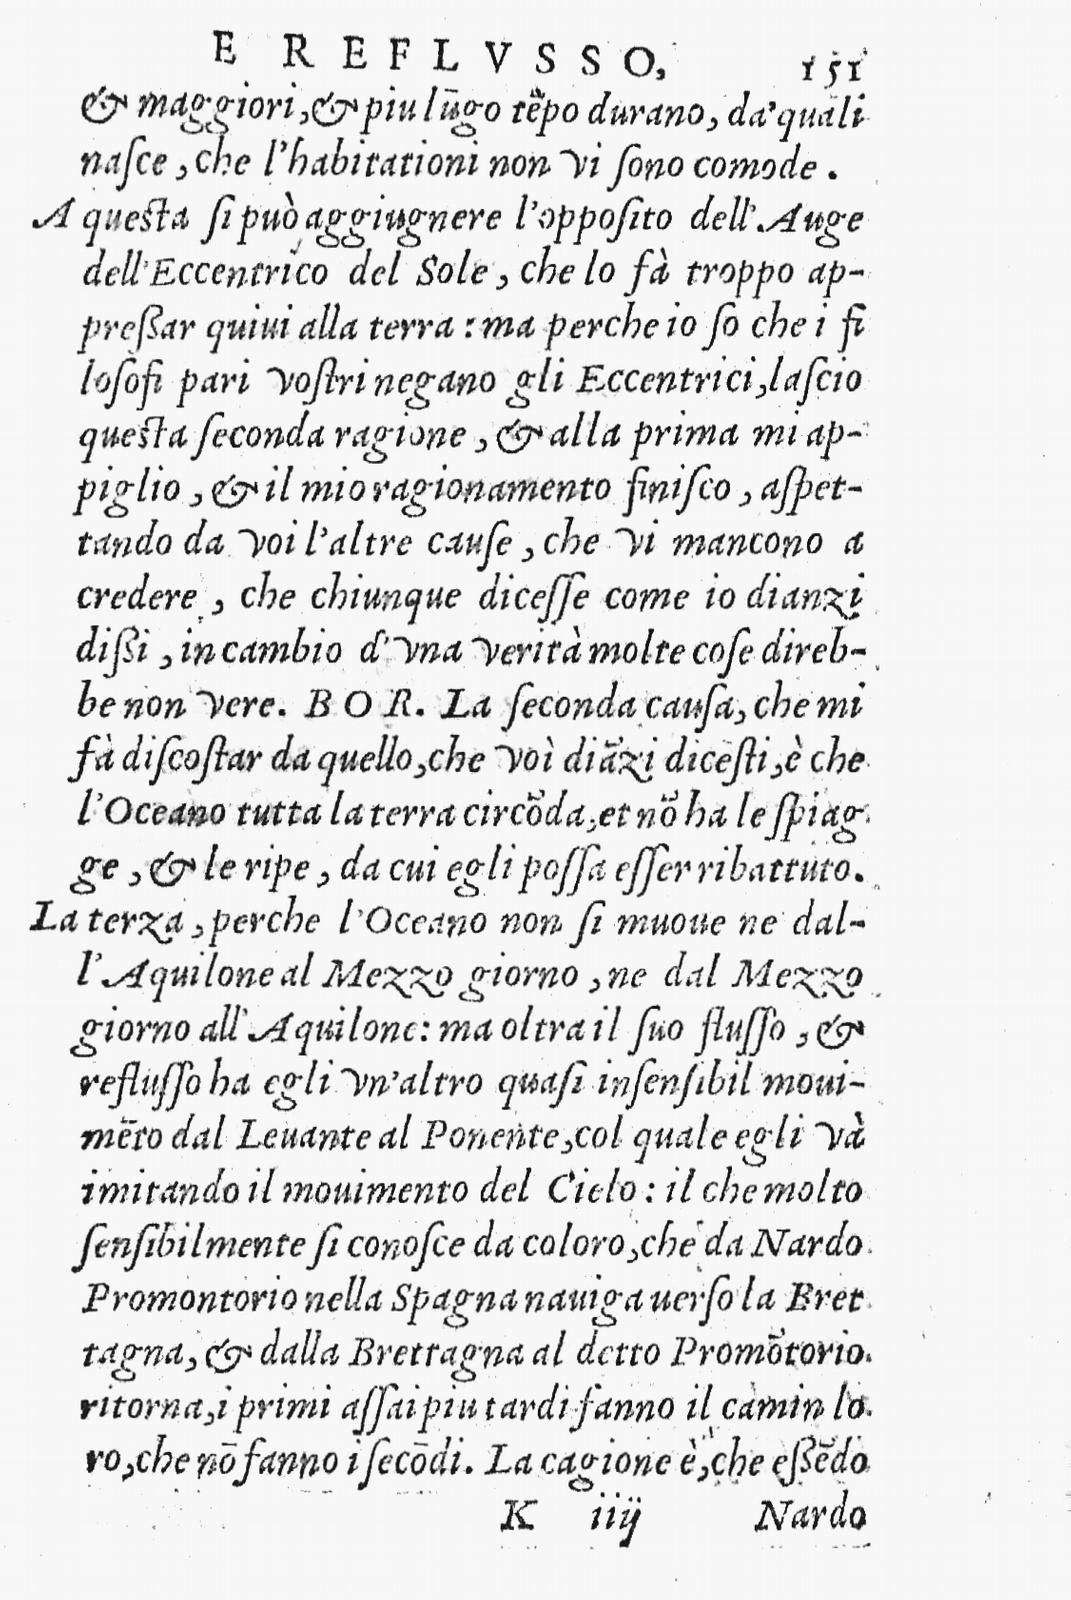 E REFLVSSO, 151
& maggiori, & piu lūgo tēpo durano, da' quali
nasce, che l'habitationi non vi sono comode.
A questa si può aggiugnere l'opposito dell'Auge
dell'Eccentrico del Sole, che lo fà troppo ap-
preßar quiui alla terra: ma perche io so che i fi
losofi pari vostri negano gli Eccentrici, lascio
questa seconda ragione, & alla prima mi ap-
piglio, & il mio ragionamento finisco, aspet-
tando da voi l'altre cause, che vi mancono a
credere, che chiunque dicesse come io dianzi
dißi, in cambio d'vna verità molte cose direb-
be non vere. BOR. La seconda causa, che mi
fà discostar da quello, che voi diāzi dicesti, è che
l'Oceano tutta la terra circōda, et nō ha le spiag
ge, & le ripe, da cui egli possa esser ribattuto.
La terza, perche l'Oceano non si muoue ne dal-
l'Aquilone al Mezzo giorno, ne dal Mezzo
giorno all'Aquilone: ma oltra il suo flusso, &
reflusso ha egli vn'altro quasi insensibil moui-
mēto dal Leuante al Ponente, col quale egli và
imitando il mouimento del Cielo: il che molto
sensibilmente si conosce da coloro, che da Nardo
Promontorio nella Spagna nauiga uerso la Bret
tagna, & dalla Brettagna al detto Promōtorio
ritorna, i primi assai piu tardi fanno il camin lo
ro, che nō fanno i secōdi. La cagione è, che eßēdo
K iiij Nardo